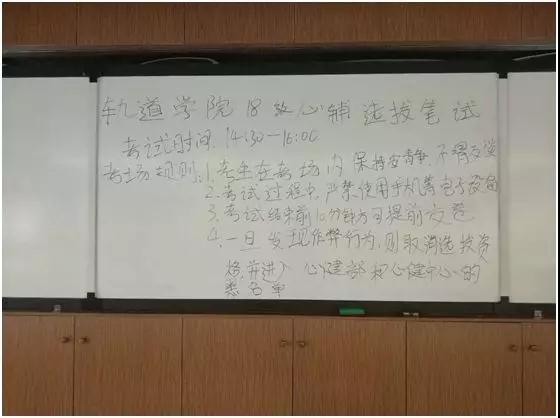 轨道学院18级心辅选拔笔试
考试时间:14:30-16:00
考场规则:1.考生在考场内保持安静,不得交谈
2.考试过程中,严禁使用手机等电子设备
3.考试结束前10分钟方可提前交卷
4.一旦发现作弊行为,则取消选拔资
格并进入心建部和心健中心的
黑名单